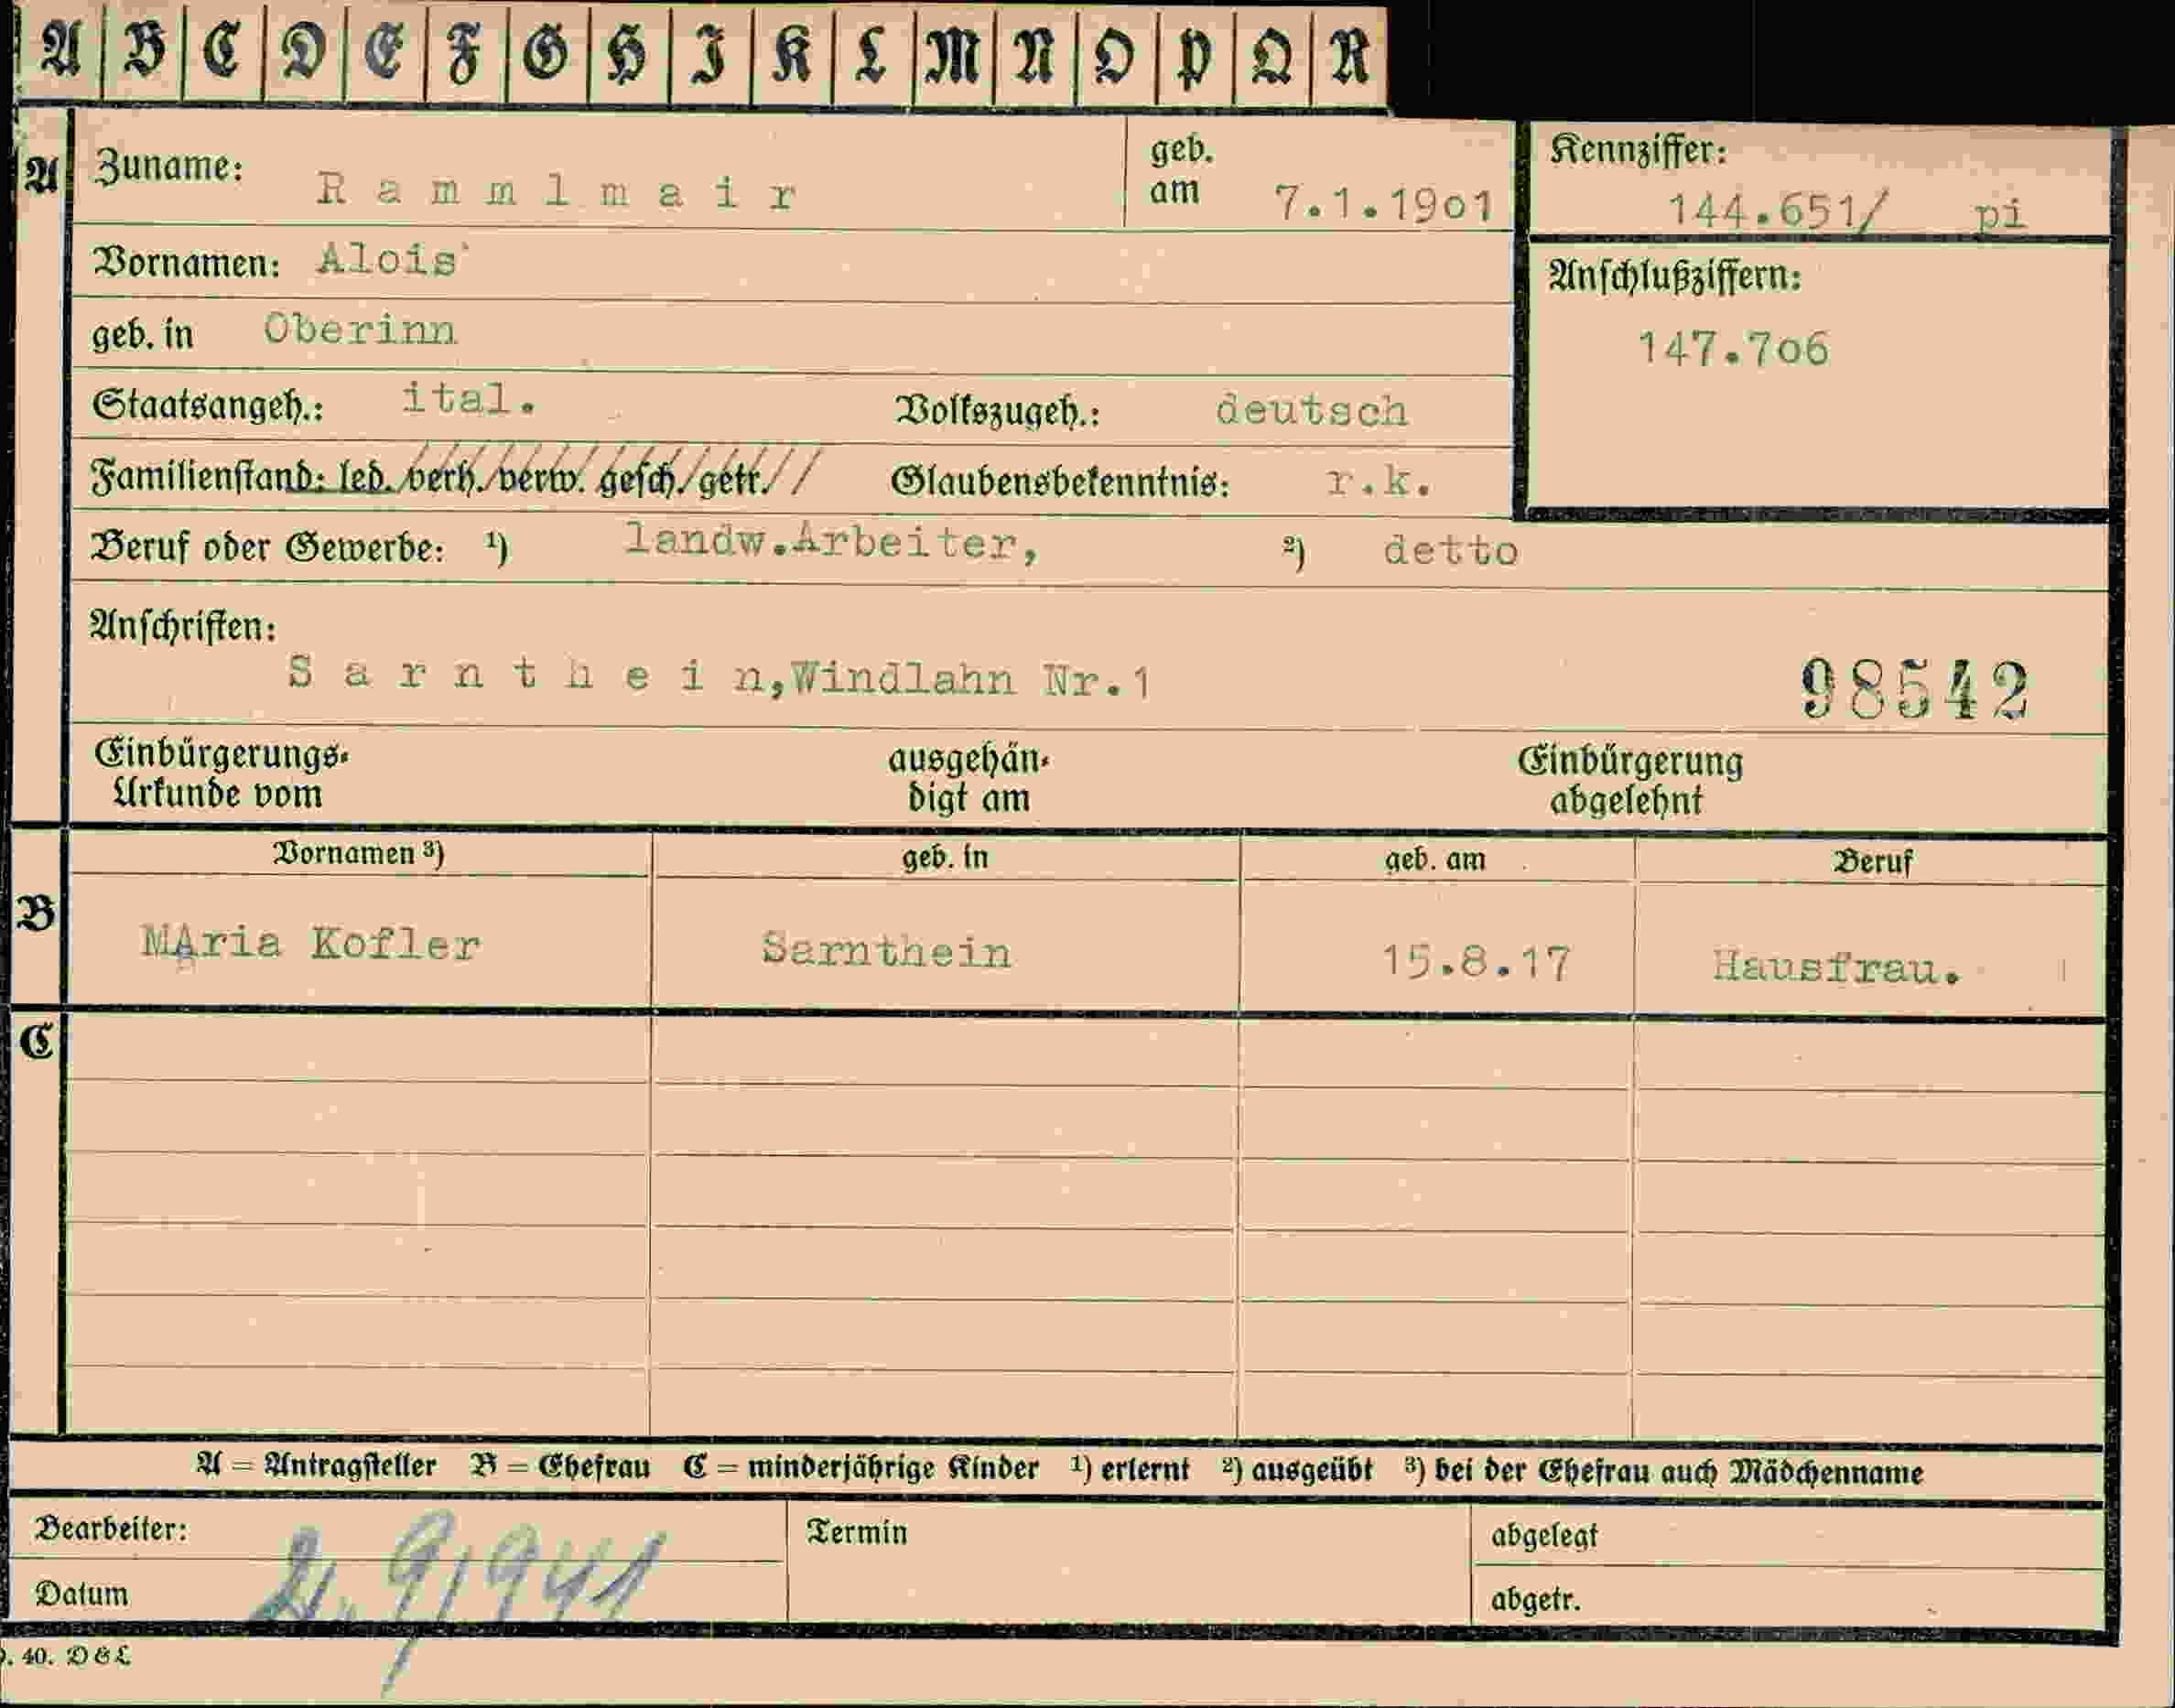 A B C D E F G H I K L M N O P Q R
A
Zuname: Rammlmair
geb. am 7.1.1901
Kennziffer:
144.651/ pi
Vornamen: Alois
Anschlußziffern:
147.706
geb. in Oberinn
Staatsangeh.: ital. Volkszugeh.: deutsch
Familienstand: led. verh. verw. gesch. getr. Glaubensbekenntnis: r.k.
Beruf oder Gewerbe: ¹) landw.Arbeiter, ²) detto
Anschriften:
Sarnthein,Windlahn Nr.1
98542
Einbürgerungs-Urkunde vom ausgehändigt am Einbürgerung abgelehnt
Vornamen ³) geb. in geb. am Beruf
B
MAria Kofler Sarnthein 15.8.17 Hausfrau.
C
A = Antragsteller B = Ehefrau C = minderjährige Kinder ¹) erlernt ²) ausgeübt ³) bei der Ehefrau auch Mädchenname
Bearbeiter: Termin abgelegt
Datum abgetr.
40. D&L